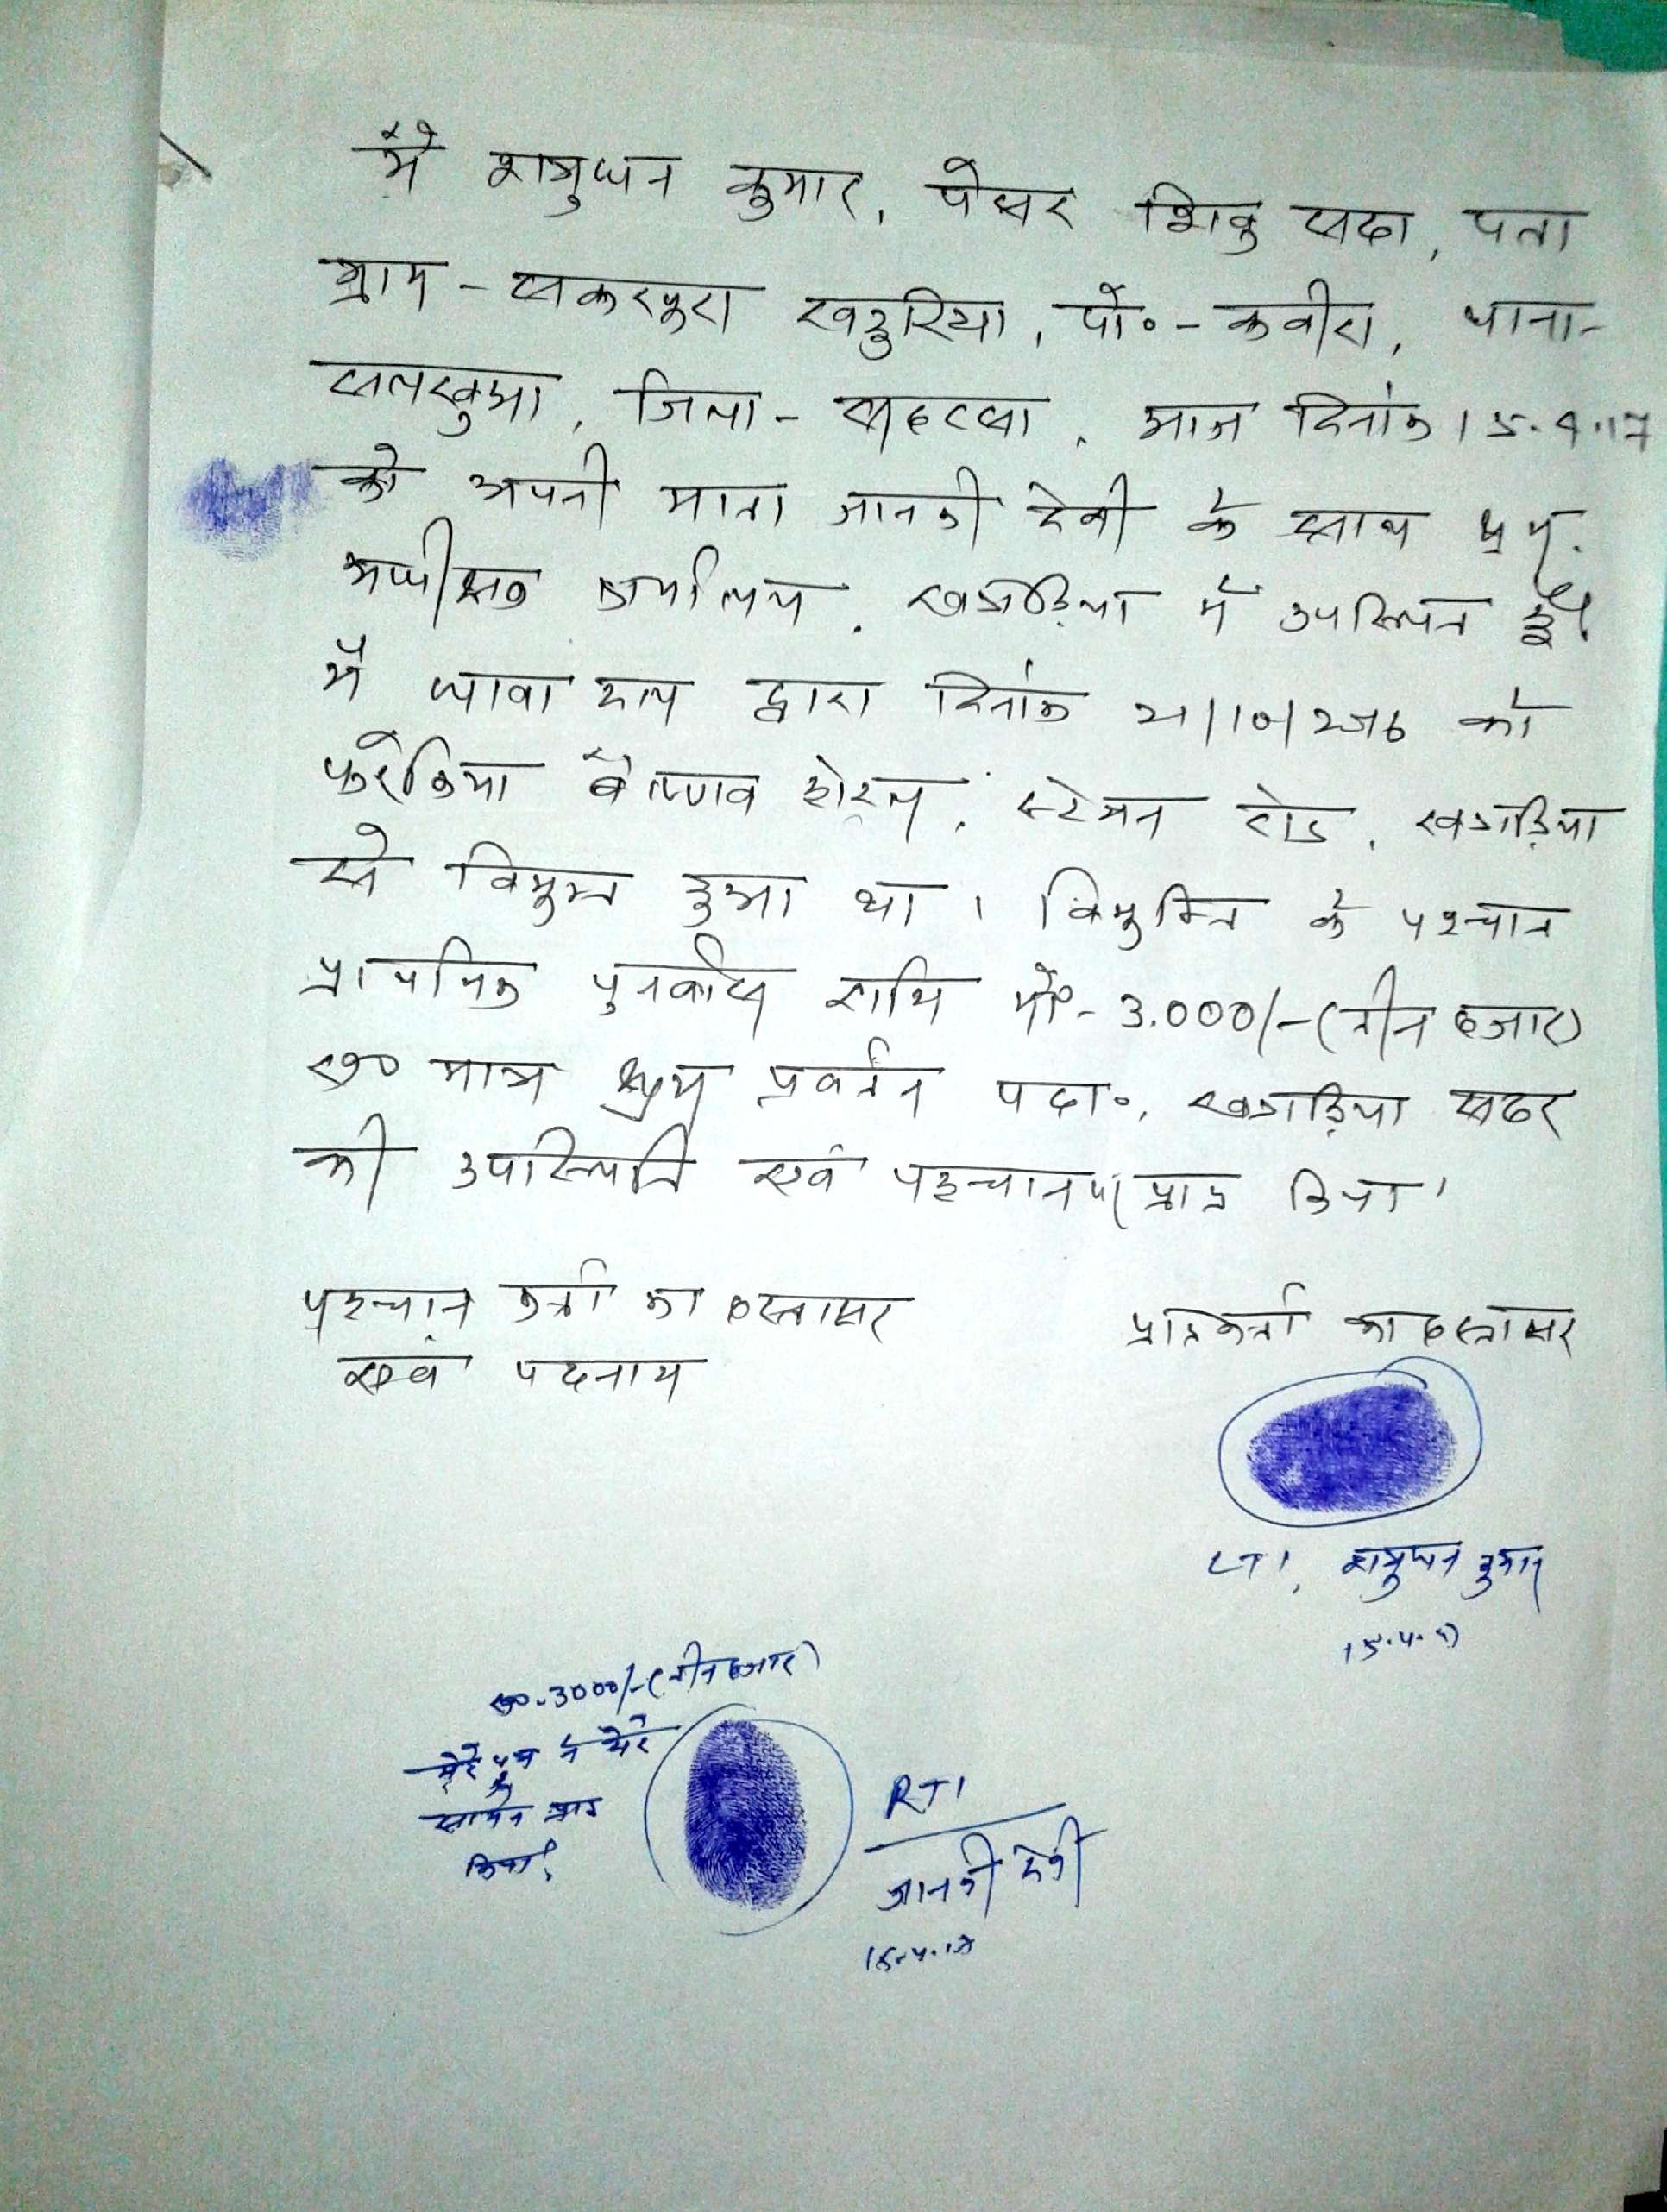 मैं शत्रुघन कुमार, पेसर शिबु सदा, पता
ग्राम - सकरपुरा खजुरिया, पो॰ - कबीरा, थाना -
सलखुआ, जिला - सहरसा, आज दिनांक 15.4.17
को अपनी माता जानकी देवी के साथ श्रम
अधीक्षक कार्यालय, खगड़िया में उपस्थित हूँ।
मैं धावा दल द्वारा दिनांक 21/10/2016 को
वैष्णव होटल, स्टेशन रोड, खगड़िया
से विमुक्त हुआ था। विमुक्ति के पश्चात
प्राथमिक पुनर्वास राशि मो॰- 3.000/- (तीन हजार)
रू० मात्र श्रम प्रवर्तन पदा॰, खगड़िया सदर
की उपस्थिति एवं पहचान पर प्राप्त किया।
पहचान कर्ता का हस्ताक्षर
एवं पदनाम
प्राप्तकर्ता का हस्ताक्षर
LTI, शत्रुघन कुमार
15.4.17
रू०.3000/- (तीन हजार)
मेरे पुत्र ने मेरे
सामने प्राप्त
किया।
RTI
जानकी देवी
15.4.17